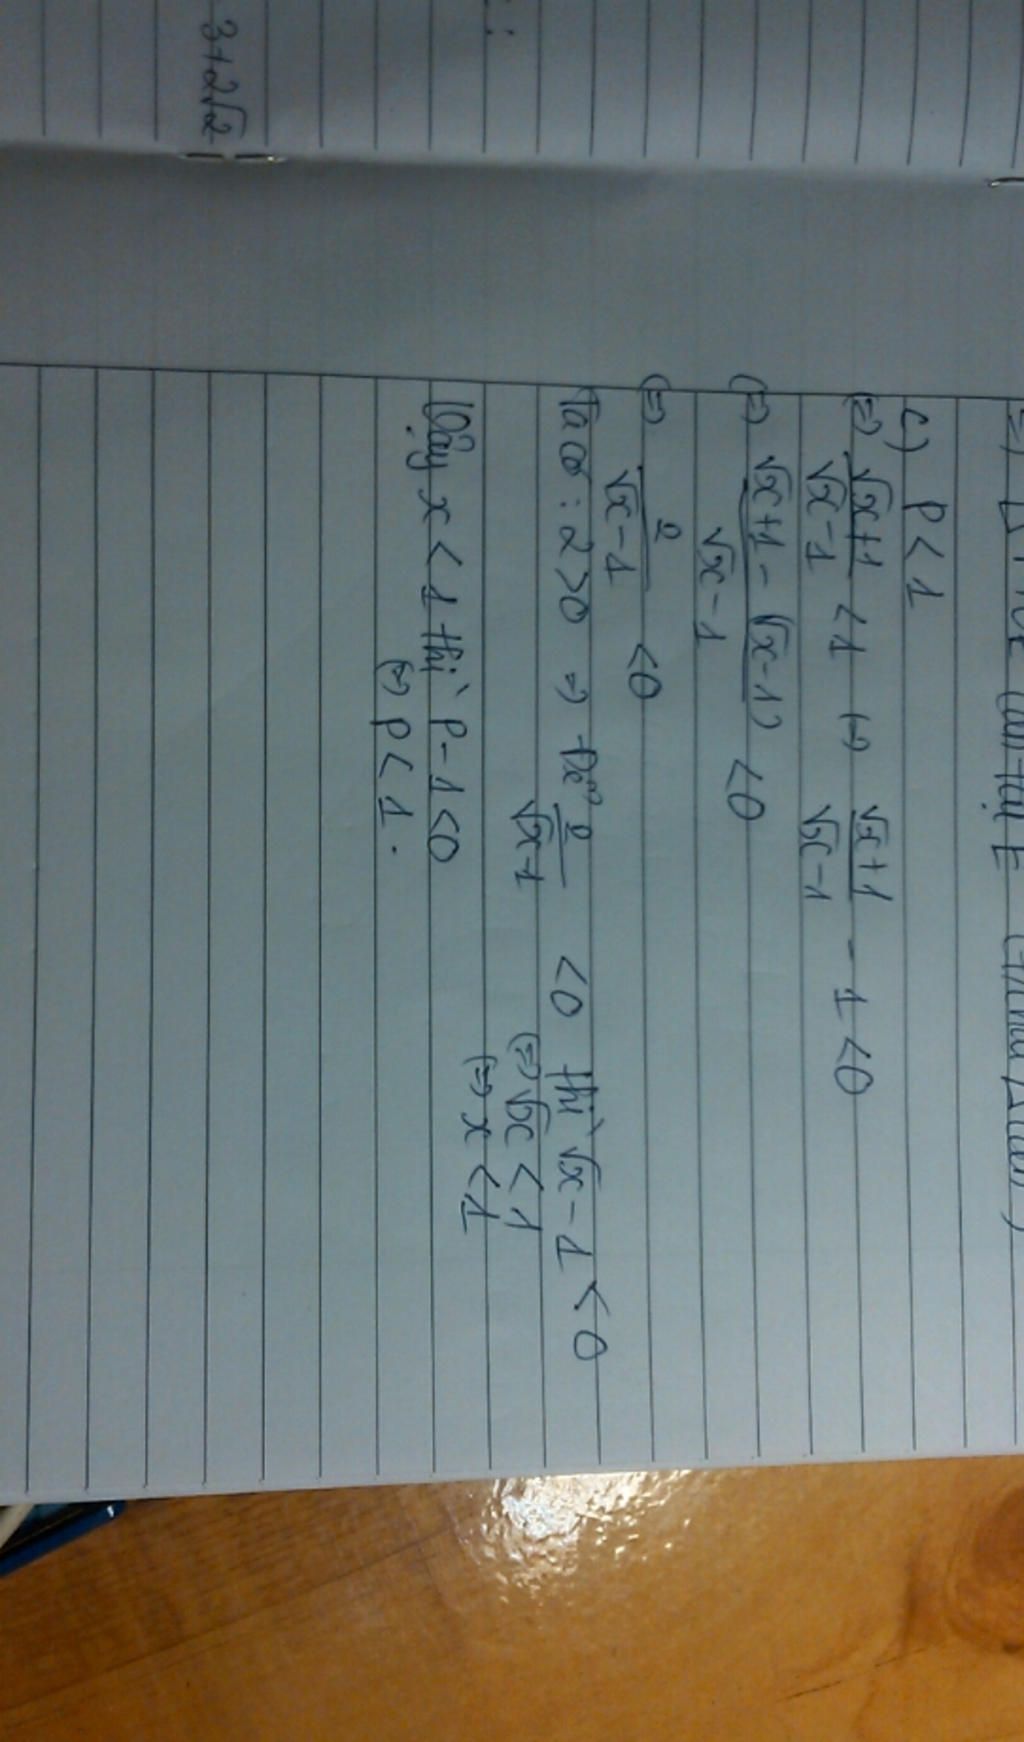 3+2√2
c) P<1
(=) √x+1/√x-1 <1 (=) √x+1/√x-1 - 1 <0
(=) √x+1 - (√x-1)/√x-1 <0
(=) 2/√x-1 <0
Ta có : 2>0 => Để 2/√x-1 <0 thì √x-1<0
(=) √x <1
(=) x <1
Vậy x<1 thì P-1<0
(=) P<1.